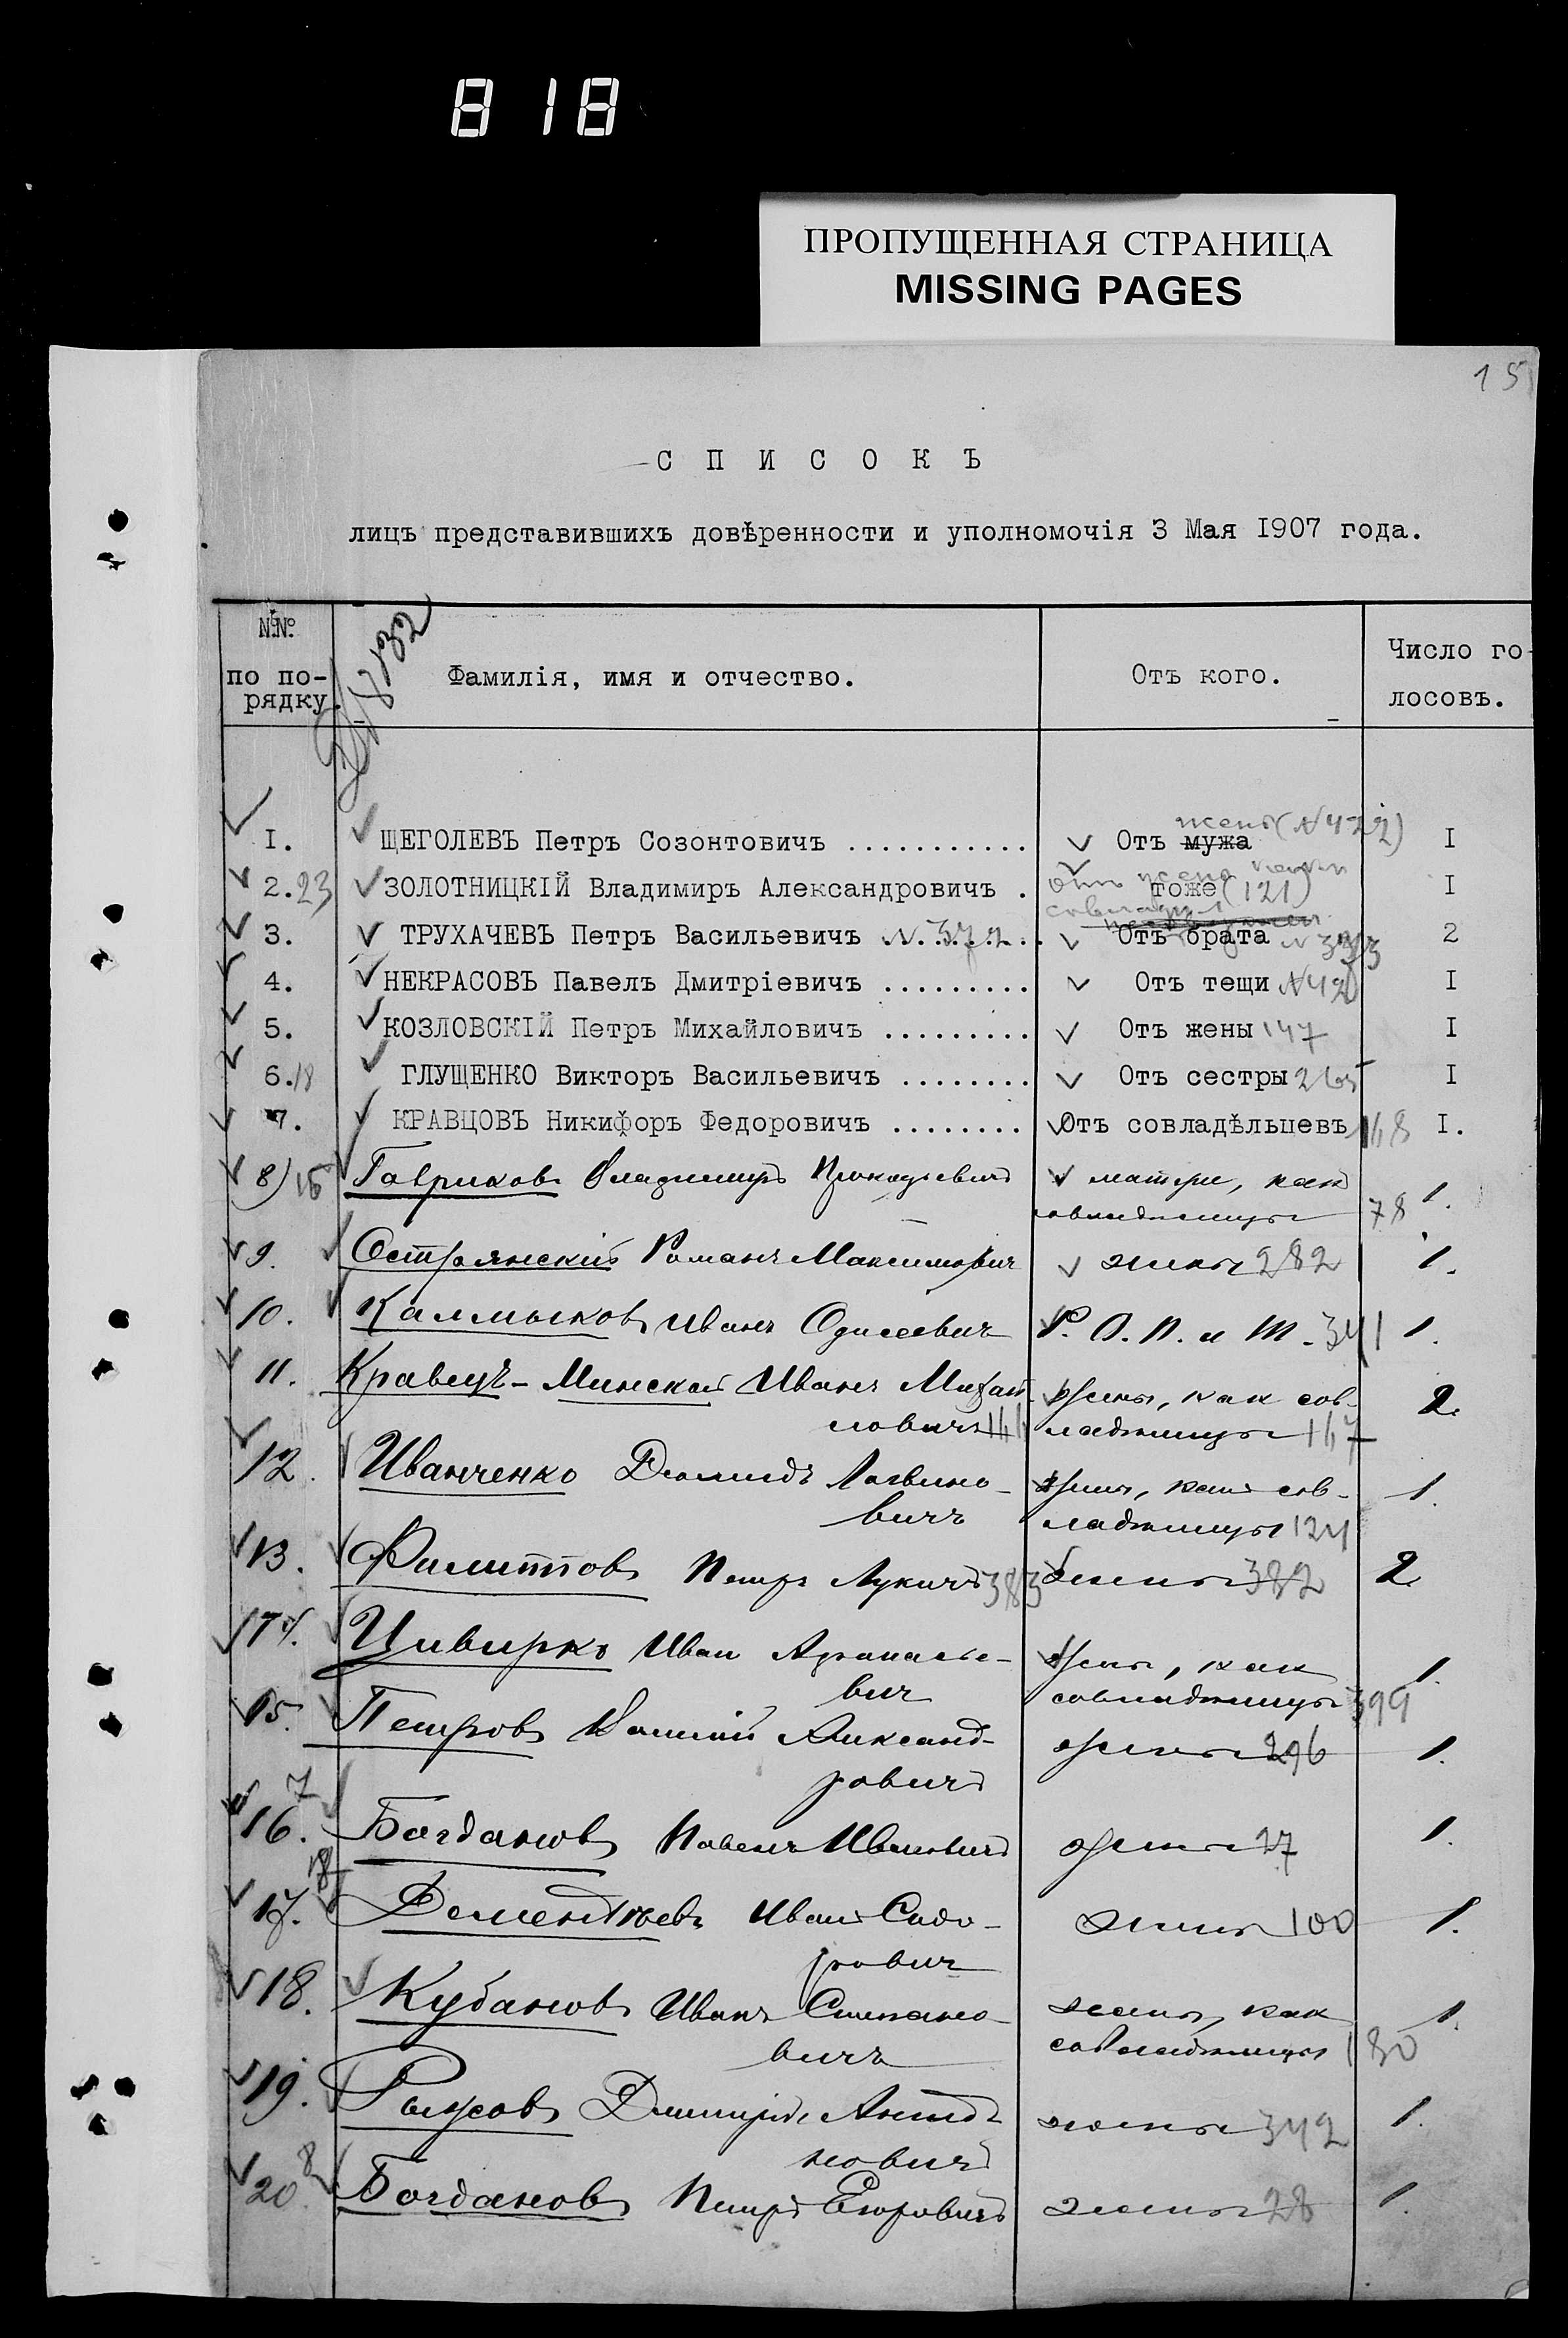 818
ПРОПУЩЕННАЯ СТРАНИЦА
MISSING PAGES
15
СПИСОКЪ
лицъ представившихъ довѣренности и уполномочія 3 Мая I907 года.
№№ по порядку. Фамилія, имя и отчество. Отъ кого. Число голосовъ.
I. ЩЕГОЛЕВЪ Петръ Созонтовичъ ........... Отъ мужа жены (N 422) I
2. 23 ЗОЛОТНИЦКІЙ Владимиръ Александровичъ . тоже (121) I
3. ТРУХАЧЕВЪ Петръ Васильевичъ N. 372 Отъ брата N 373 2
4. НЕКРАСОВЪ Павелъ Дмитріевичъ ......... Отъ тещи N 42 I
5. КОЗЛОВСКІЙ Петръ Михайловичъ ......... Отъ жены 147 I
6. 18 ГЛУЩЕНКО Викторъ Васильевичъ ........ Отъ сестры 265 I
7. КРАВЦОВЪ Никифоръ Федоровичъ ........ Отъ совладѣльцевъ 168 I.
8) 15 Гавриковъ Владимиръ матери, какъ
совладѣлицы 78 1.
9. Острянскій Романъ Максимович жены 282 1.
10. Калмыковъ Иванъ Одисеевич Р. О. П. и Т. 341 1.
11. Кравецъ-Минской Иванъ Михай- жены, как сов- 2.
ловичъ 141 ладѣлицы 167
12. Иванченко Диомидъ Логвино- жены, какъ сов- 1.
вичъ ладѣлицы 124
13. Филиппов Петръ Лукичъ 383 жены 382 2.
14. Цивирко Иван Афанасье- жены, как 1.
вич совладѣлицы 399
15. Петровъ Василий Александ- жены 296 1.
ровичъ
16. 7 Богдановъ Павелъ Ивановичъ жены 27 1.
17. 18 Дементьевъ Иван Сидо- жены 100 1.
рович
18. Кубановъ Иванъ Степано- жены, как 1.
вичъ совладѣлицы 180
19. Рыжовъ Дмитрій жены 342 1.
новичъ
20. 8 Богдановъ Петръ Егоровичъ жены 28 1.